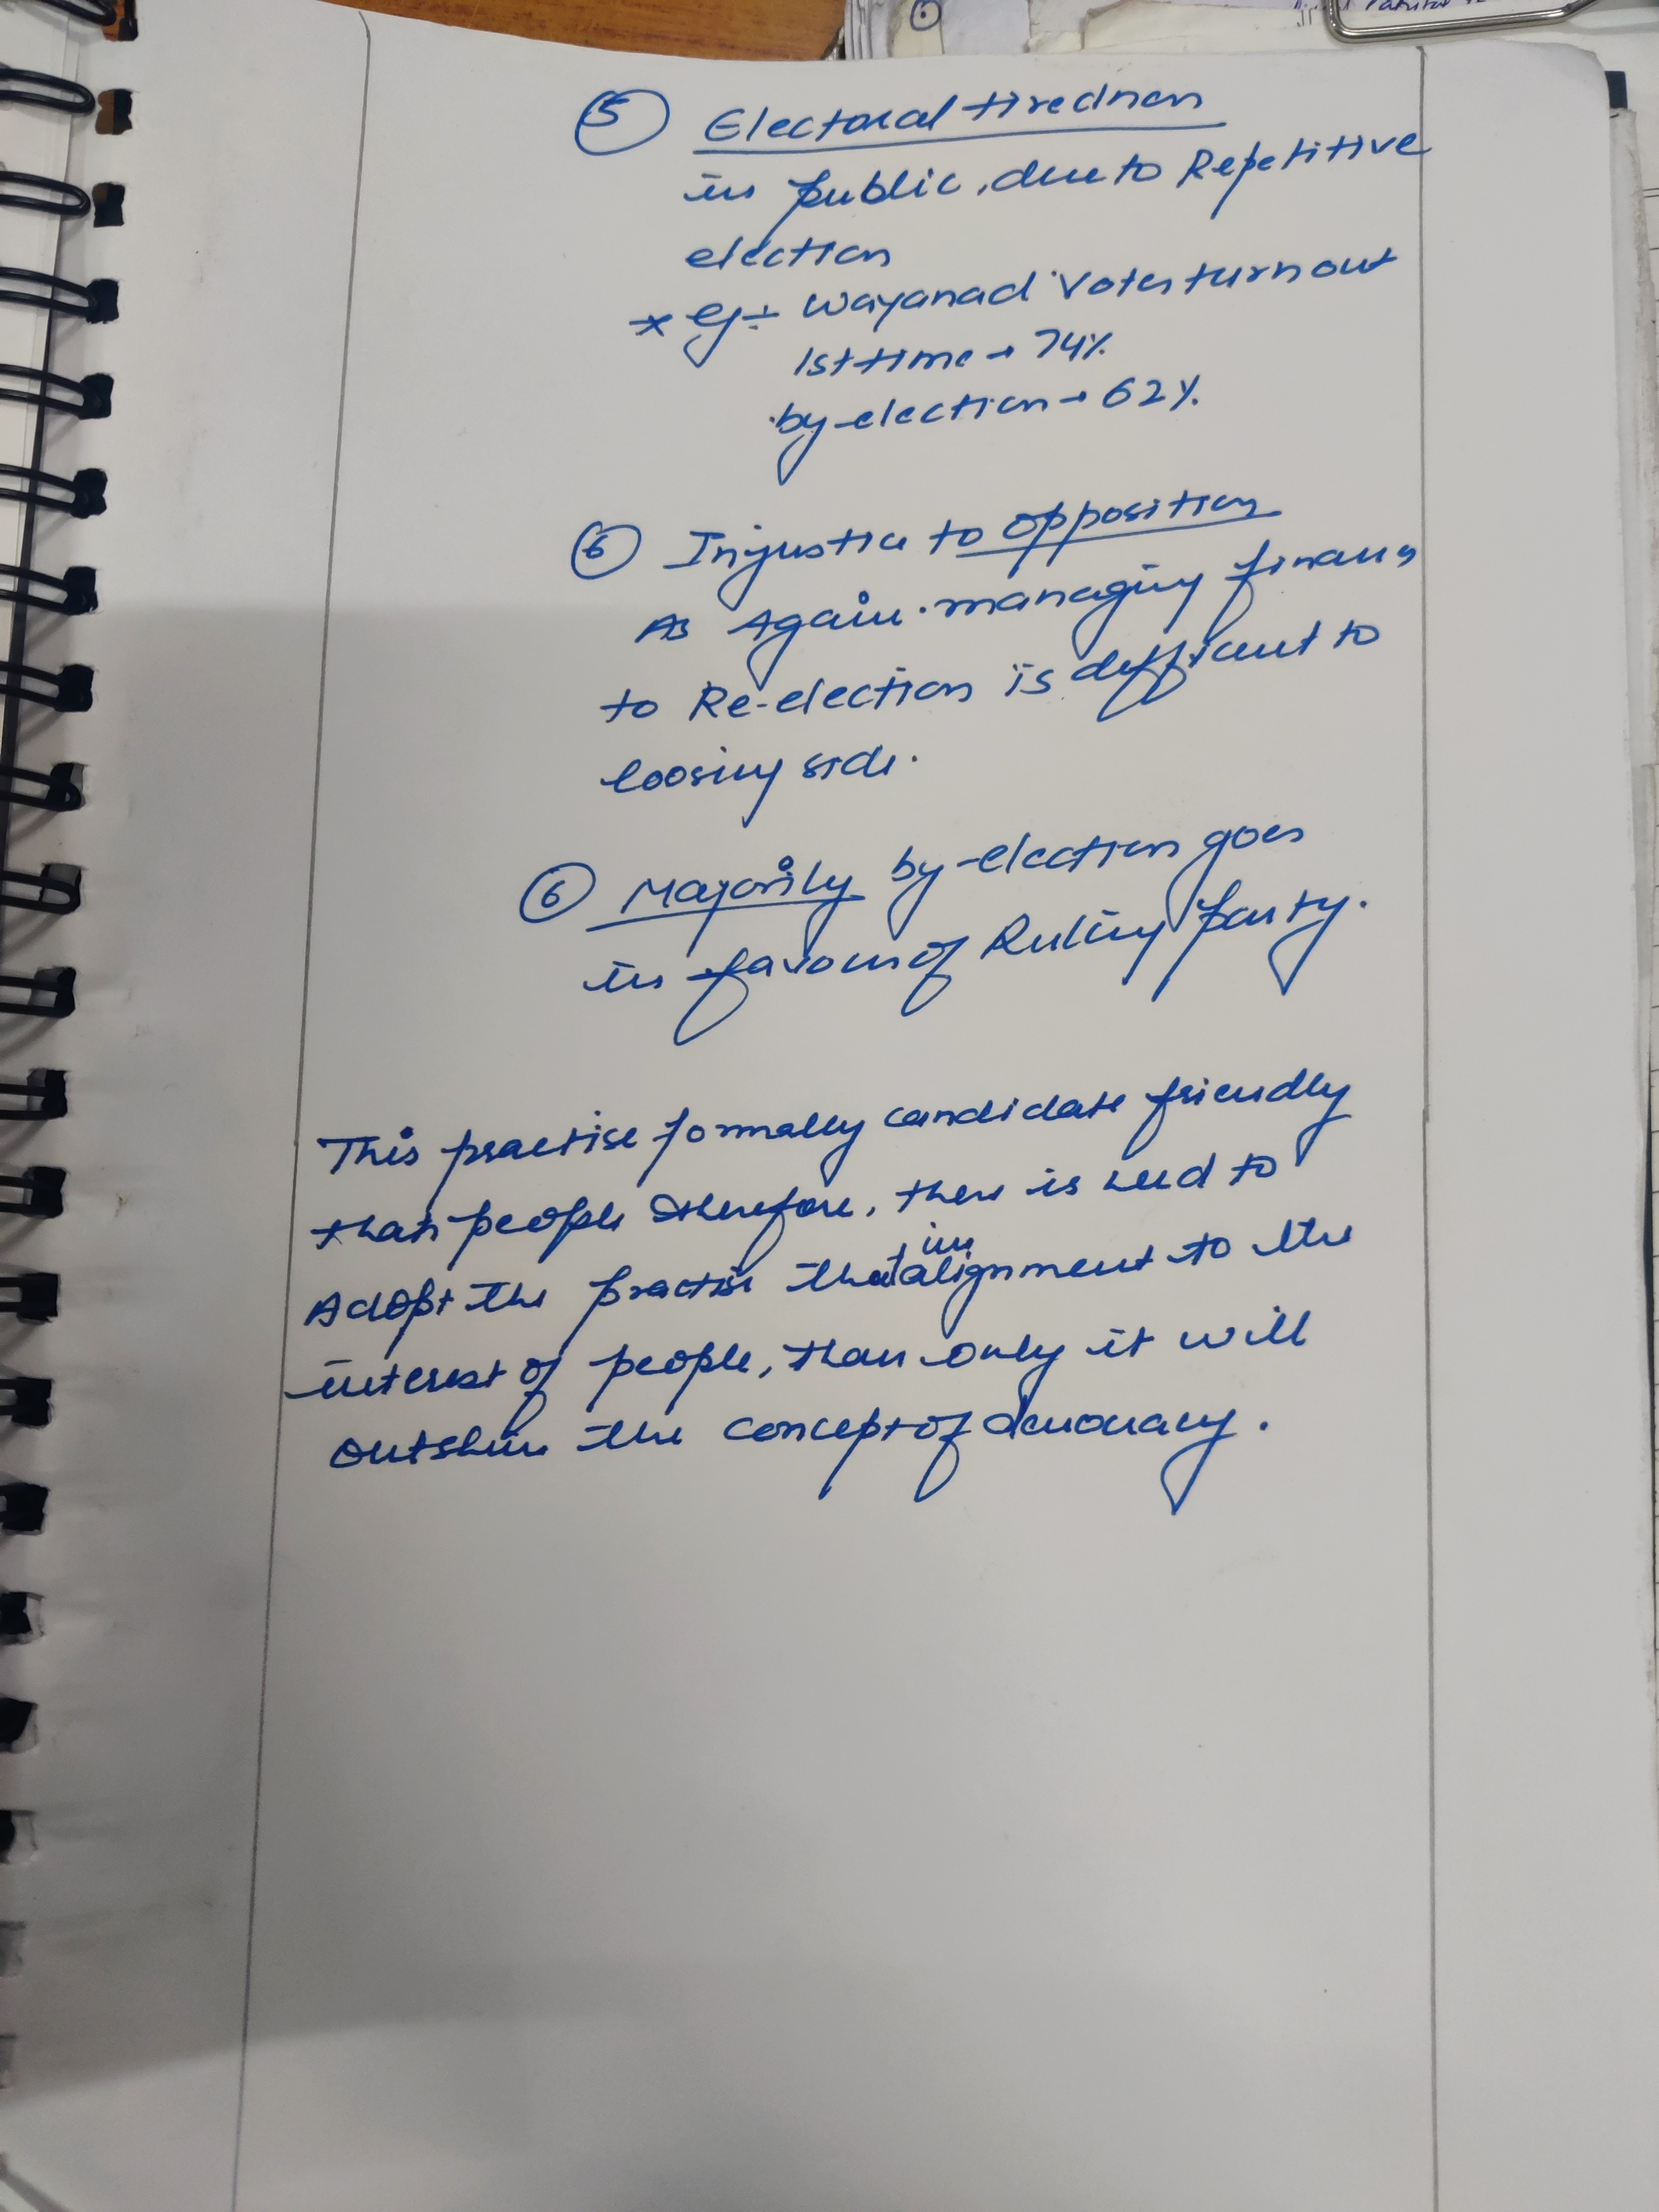 5 Electoral tiredness
in public, due to Repetitive
election
* eg :- Wayanad Voter turn out
1st time → 74%
by-election → 62%
6 Injustice to opposition
As Again managing finances
to Re-election is difficult to
loosing side.
6 Majority by-election goes
in favour of Ruling party.
This practise formally candidate friendly
than people therefore, there is need to
Adopt the practise that in alignment to the
interest of people, than only it will
outshine the concept of democracy.